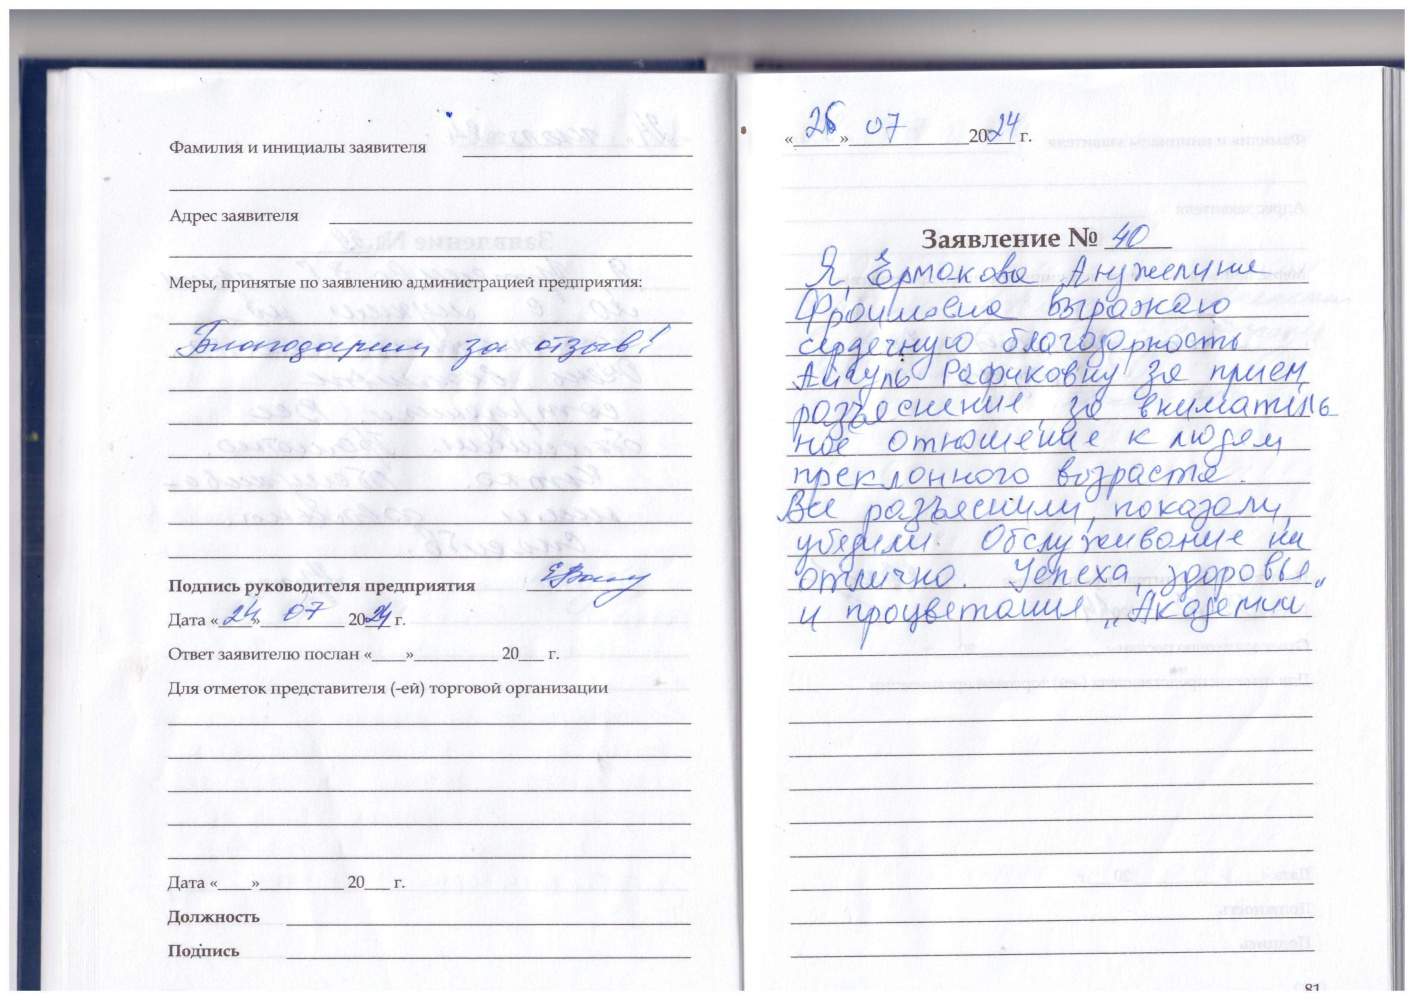 Фамилия и инициалы заявителя
Адрес заявителя
Меры, принятые по заявлению администрацией предприятия:
Благодарим за отзыв!
Подпись руководителя предприятия
Дата «24» 07 2024 г.
Ответ заявителю послан «____»__________ 20___ г.
Для отметок представителя (-ей) торговой организации
Дата «____»__________ 20___ г.
Должность
Подпись
«26» 07 2024 г.
Заявление № 40
Я, Ермакова Анужелина
Фаимовна выражаю
сердечную благодарность
Айгуль Рафиковну за прием,
разъяснение, за вниматель
ное отношение к людем
преклонного возраста.
Все разъяснили, показали,
убедили. Обслуживание на
отлично. Успеха, здоровья
и процветание „Академии"
81